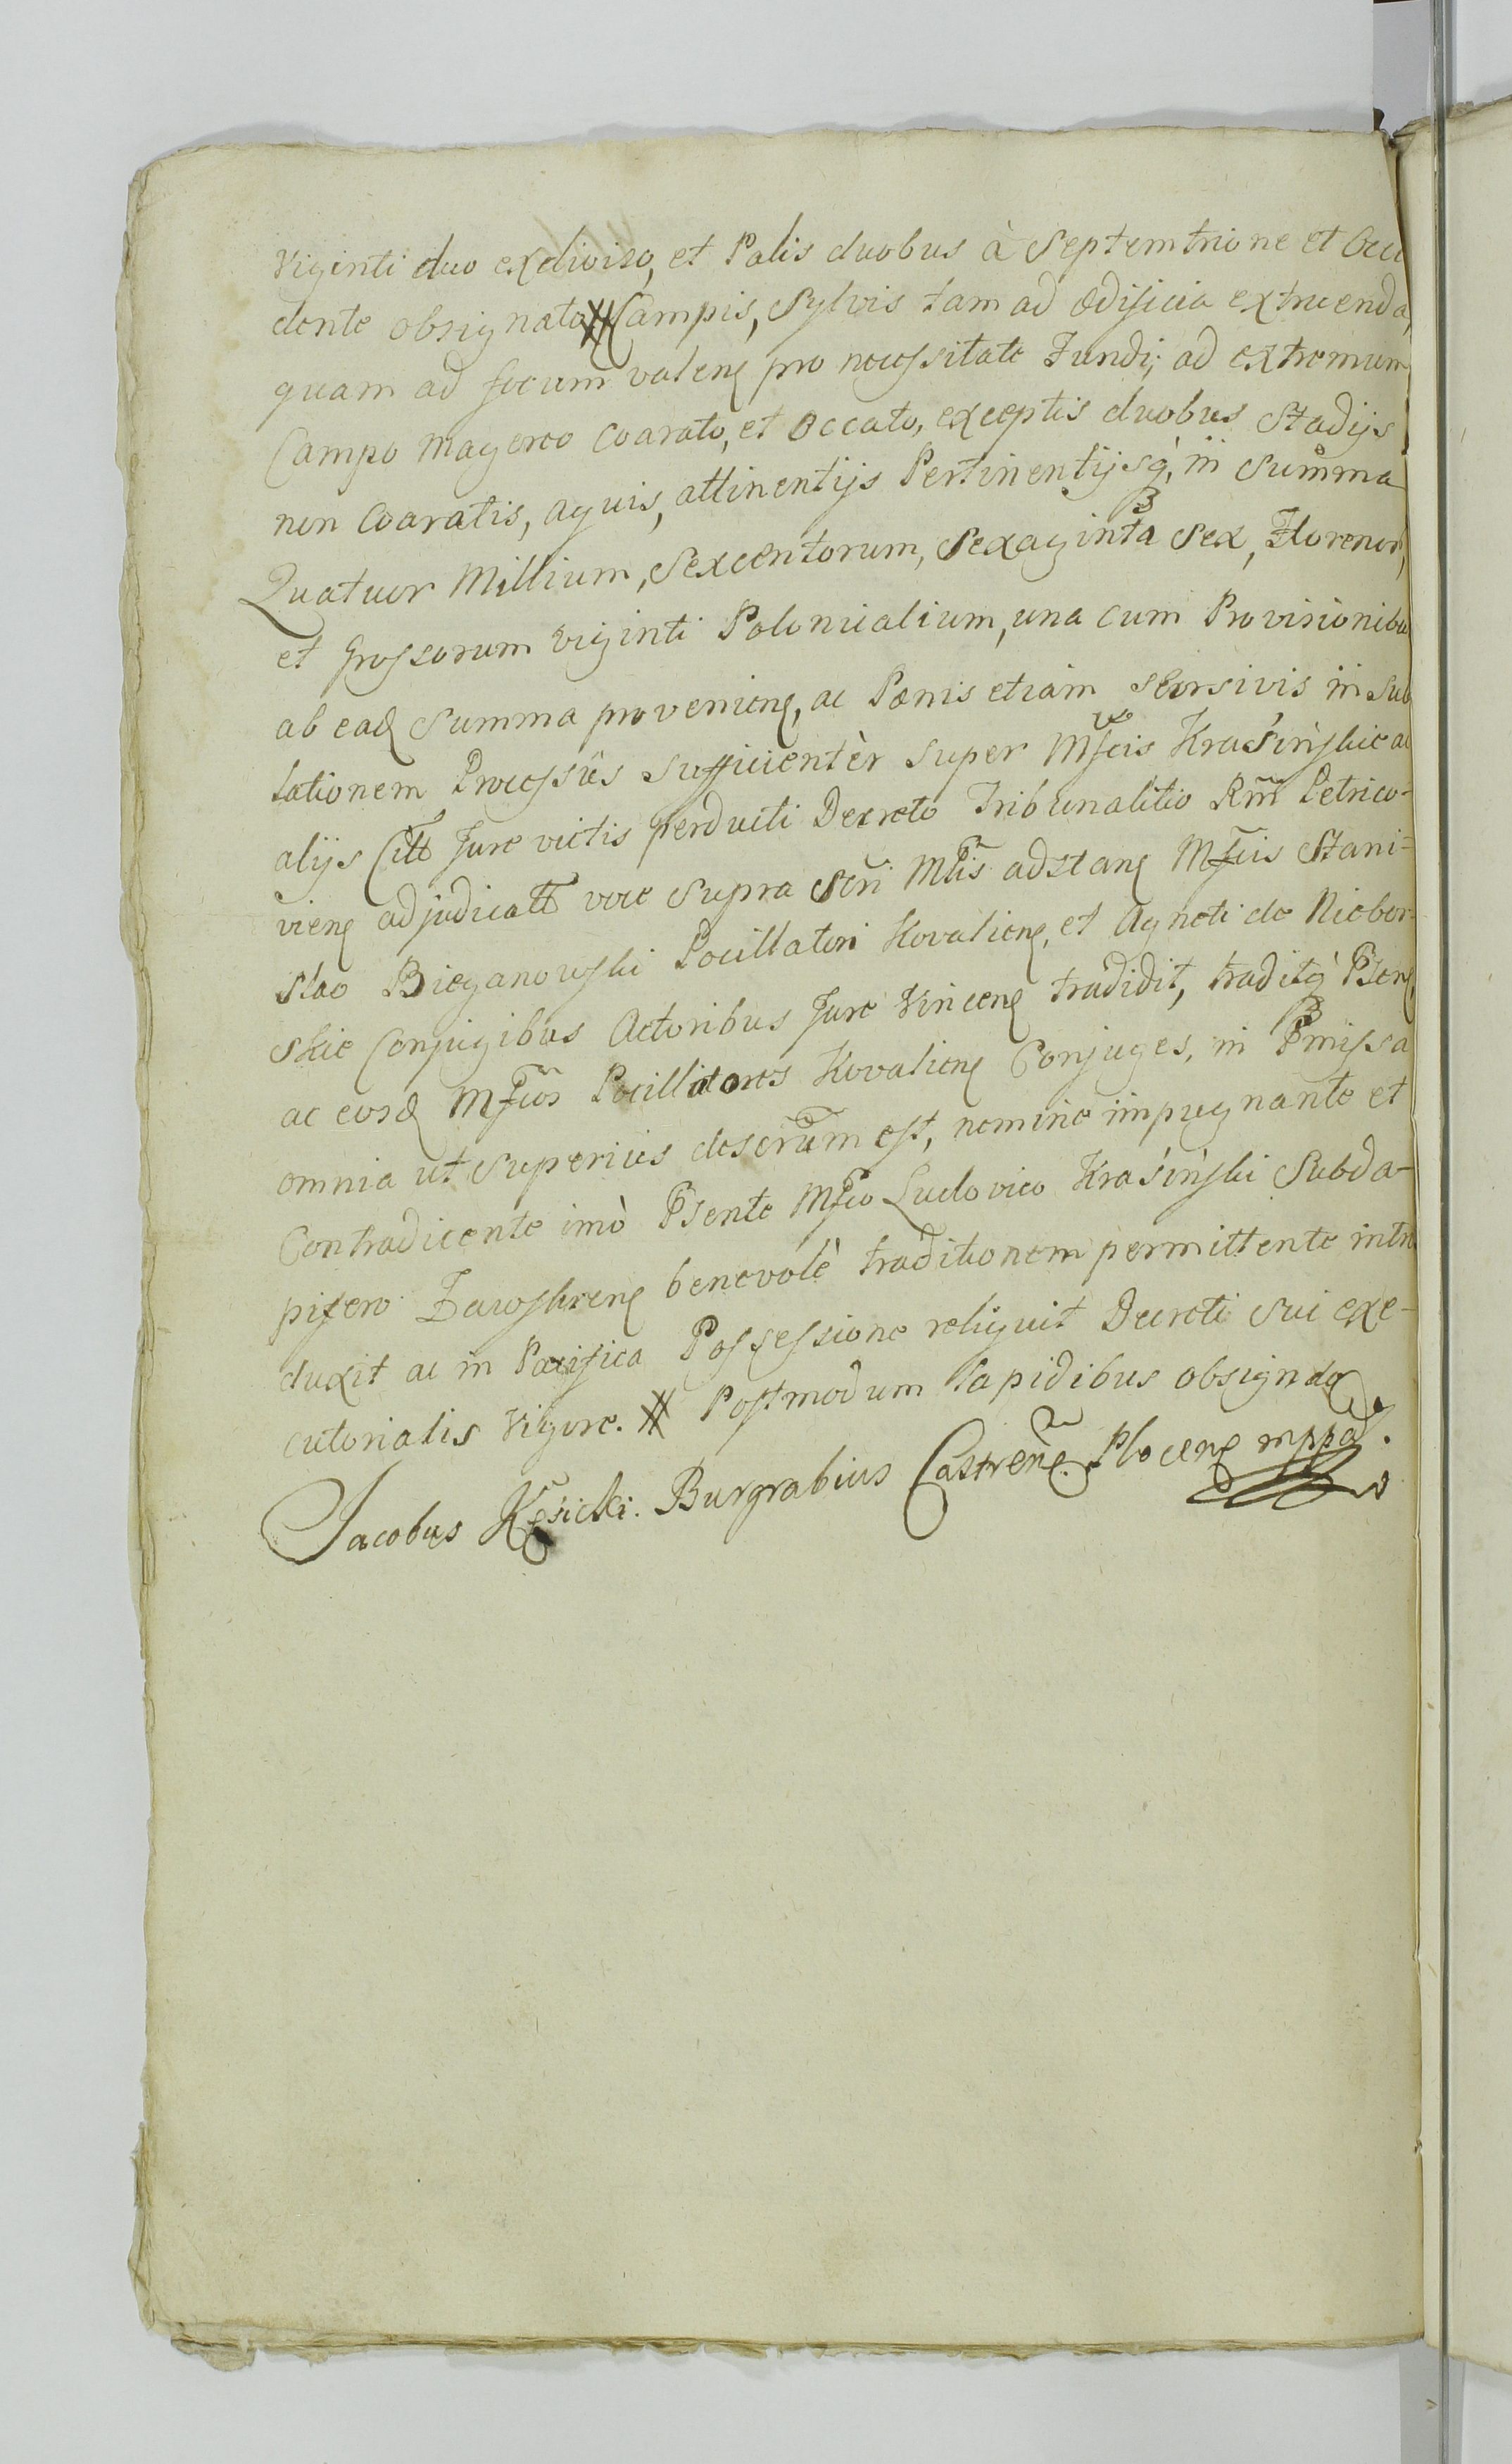 Viginti duo exdiviso, et Palis duobus à Septemtrione et Occi
dente obsignato # Campis, Sylvis tam ad ædificia extruenda,
quam ad focum valenꝭ pro necessitate Fundi, ad extremum
Campo Magereo Coarato, et Occato, exceptis duobus Stadijs
non Coaratis, aquis, attinentijs Pertinentijsq́, in Summa
Quatuor Millium, Sexcentorum, Sexaginta Sex, Florenor,
et Grossorum viginti Polonicalium, una cum Provisionibu
ab eadꝭ Summa provenienꝭ, ac Pænis etiam seorsivis in Sub
lationem Processûs sufficientèr super Mfcis Krasińskie ac
alijs Citt Jure victis perducti Decreto Tribunalitio Rm̃ Petrico-
vienꝭ adjudicatt vere supra Scri Mtis adstanꝭ Mfcis Stani-
slao Bieganowski Pocillatori Kovalienꝭ, et Agneti de Niebor-
skie Conjugibus Actoribus Jure Vincenꝭ tradidit, traditq́ Psenꝭ
ac eosdꝭ Mfcos Pocillatores Kovalienꝭ Conjuges, in Pmissa
omnia ut superius descrûm est, nemine impugnante et
Contradicente imò Psente Mfco Ludovico Krasiński Subda-
pifero Zawskrenꝭ benevolè traditionem permittente intro
duxit ac in Pacifica Possessione reliquit Decreti sui exe-
cutorialis vigore. # Postmodum lapidibus obsignda
Jacobus Kęsicki. Burgrabius Castrenꝭ. Plocenꝭ mppa.